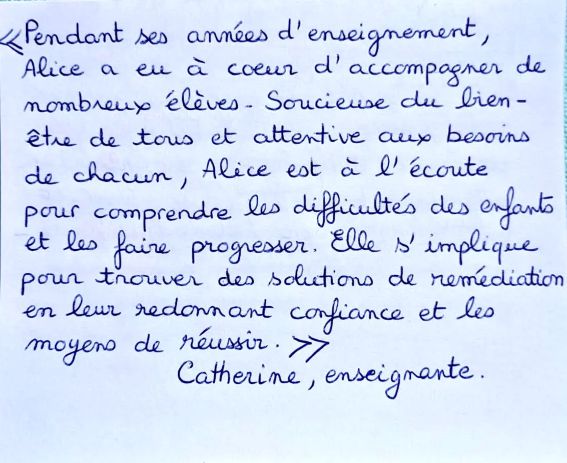 « Pendant ses années d'enseignement,
Alice a eu à coeur d'accompagner de
nombreux élèves. Soucieuse du bien-
être de tous et attentive aux besoins
de chacun, Alice est à l'écoute
pour comprendre les difficultés des enfants
et les faire progresser. Elle s'implique
pour trouver des solutions de remédiation
en leur redonnant confiance et les
moyens de réussir. »
Catherine, enseignante.